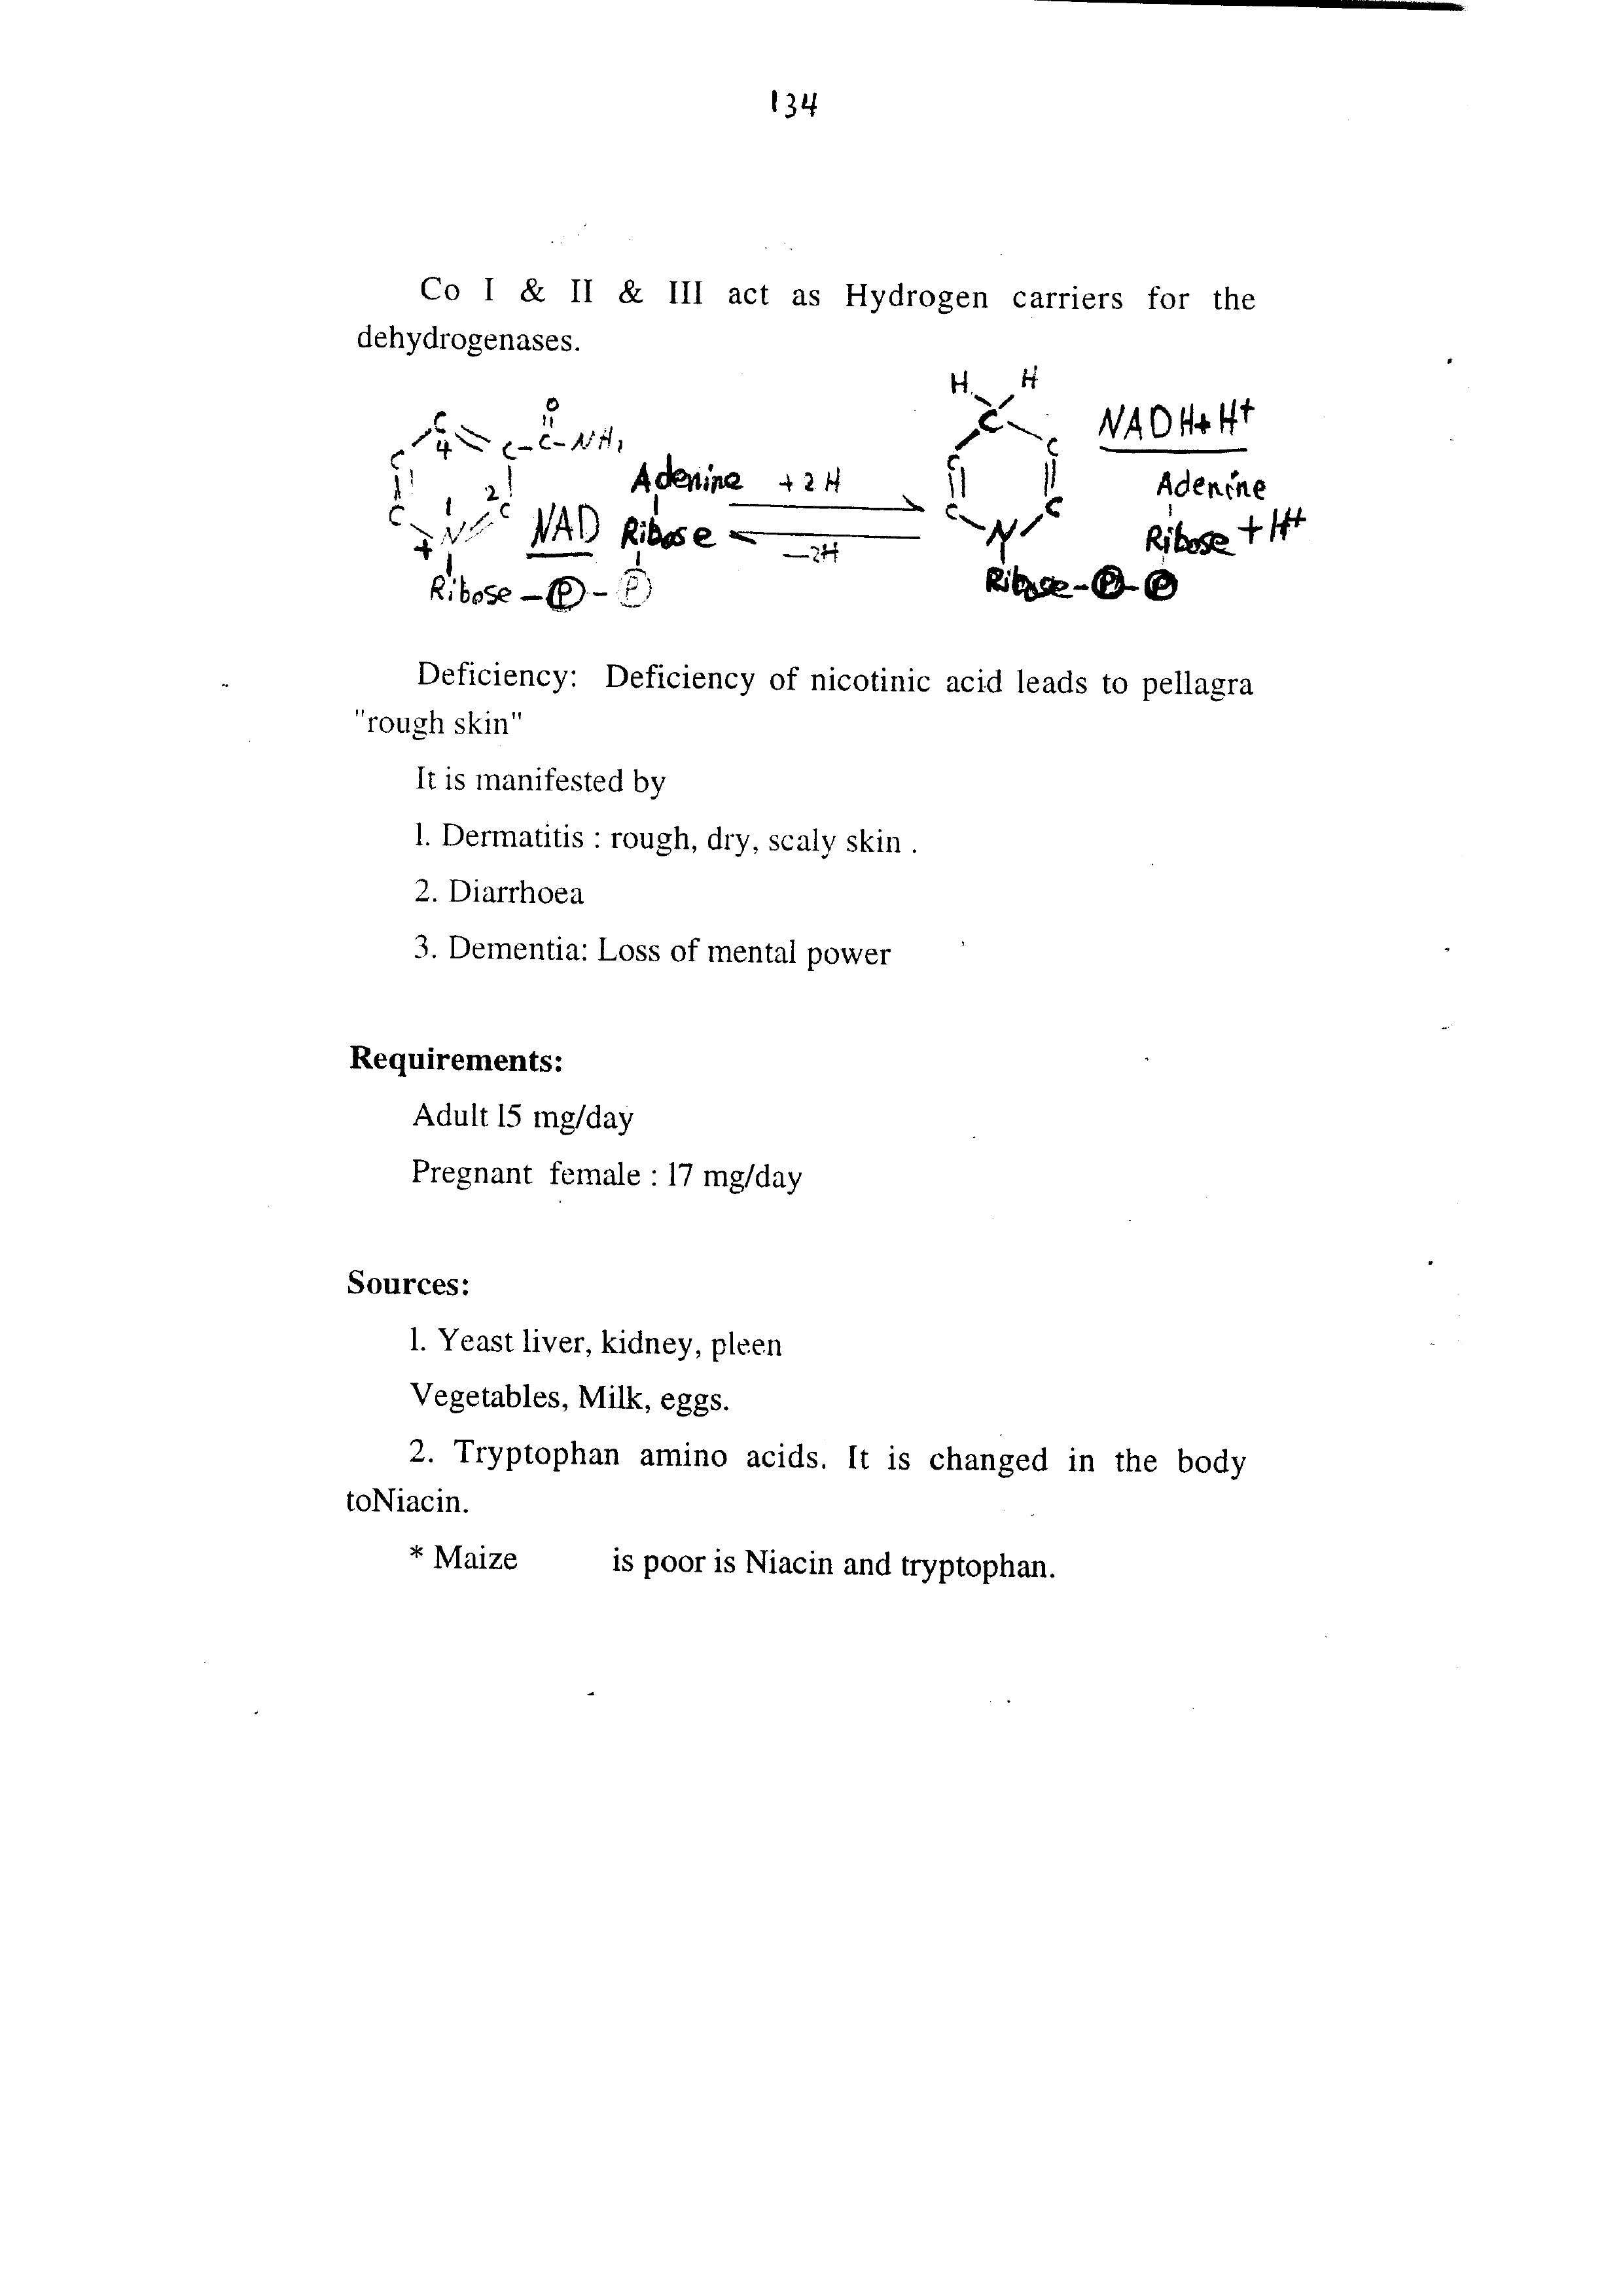 134
Co I & II & III act as Hydrogen carriers for the
dehydrogenases.
H H
C O C NADH+H+
C 4 C-C-NH₂ C C
C 2 Adenine +2H Adenine
C 1 C NAD Ribose C C Ribose + H+
+ N -2H N
Ribose - P - P Ribose - P - P
Deficiency: Deficiency of nicotinic acid leads to pellagra
"rough skin"
It is manifested by
1. Dermatitis : rough, dry, scaly skin .
2. Diarrhoea
3. Dementia: Loss of mental power
Requirements:
Adult 15 mg/day
Pregnant female : 17 mg/day
Sources:
1. Yeast liver, kidney, pleen
Vegetables, Milk, eggs.
2. Tryptophan amino acids. It is changed in the body
toNiacin.
* Maize is poor is Niacin and tryptophan.